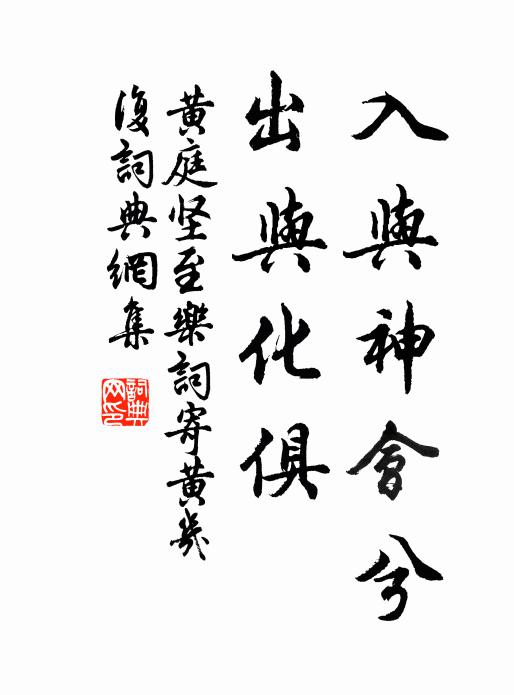 入與神會兮
出與化俱
黄庭坚至樂詞寄黄幾
復詞典網集
詞典
网印